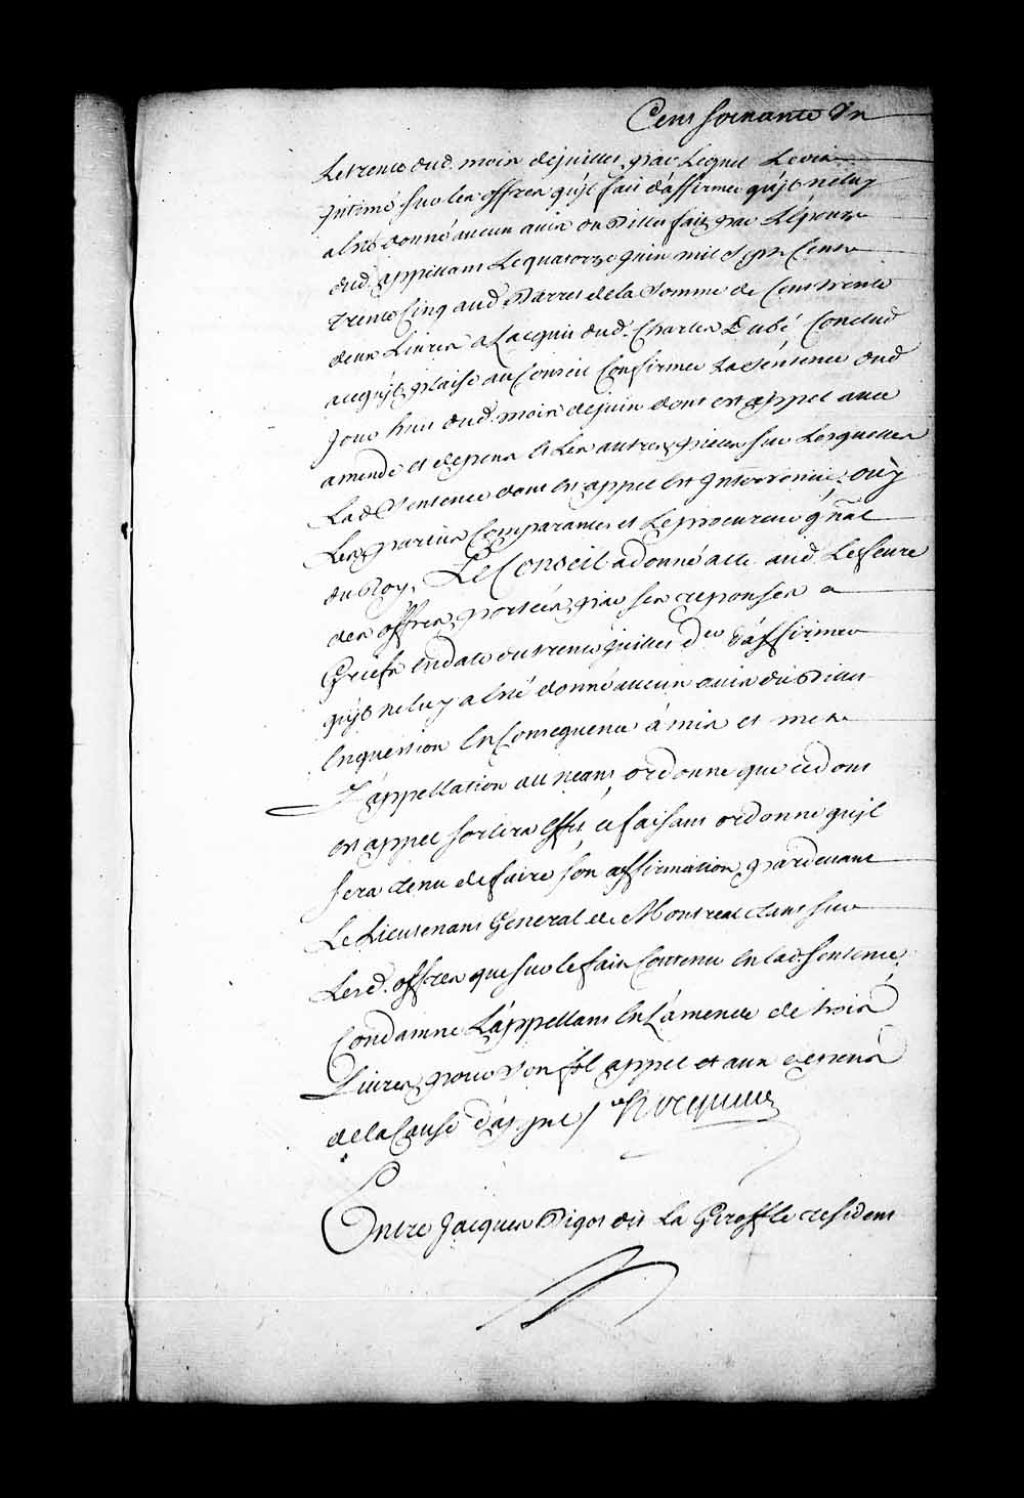 Cent Soixante Un
Le trente dud. mois de juillet, par Lequel Led.
Intimé sur les offres qu'il fait d'affirmer qu'il ne luy
a Esté donné aucun avis du Billet fait par L'épouze
dud. appellant Le quatorze juin mil Sept Cent
trente Cinq aud. de la Somme de Cent trente
deux Livres a L'acquit dud. Charles Dubé Conclud
acequ'il plaise au Conseil Confirmer La Sentence dud
Jour huit dud. mois de juin dont est appel avec
amende et depens et Les autres pieces sur Lesquelles
Lad Sentence dont est appel Est Intervenüe, ouÿ
Les parties Comparantes et Le procureur gñal
du Roy, Le Conseil a donné acte aud Lefevre
des offres portées par ses reponses a
Griefs En datte du trente juillet der d'affirmer
qu'il ne luy a Esté donné aucun avis du Billet
En question En Consequence à mis et met
L'appellation au neant, ordonne que ce dont
est appel sortira Effet, ce faisant ordonne qu'il
sera tenu de faire son affirmation pardevant
Le Lieutenant General de Montreal tant sur
Lesd. offres que sur le fait Contenu En lad. Sentence,
Condamne L'appellant En L'amende de trois
Livres pour Son fol appel et aux depens
de la Cause d'appel / Hocquart
Entre Jacques Bigot dit La Giroffle resident